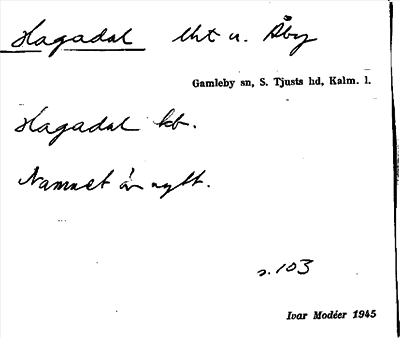 Hagadal lht u. Åby
Gamleby sn, S. Tjusts hd, Kalm. l.
Hagadal kb.
Namnet är nytt.
s. 103
Ivar Modéer 1945